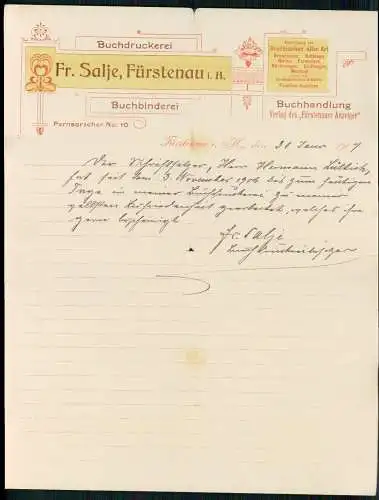 Buchdruckerei
Fr. Salje, Fürstenau i. H.
Buchbinderei
Fernsprecher No. 10
Anfertigung von
Drucksachen aller Art
Buchhandlung
Verlag des „Fürstenauer Anzeiger"
Fürstenau i. H., den 30 Janr 1907
Der Schriftsetzer, Herr Hermann
hat seit dem 3. November 1906 bis zum heutigen
Tage in meiner Buchdruckerei zu meiner
vollsten Zufriedenheit gearbeitet, welches ihm
gern bescheinigt
Fr. Salje
Buchdruckereibesitzer